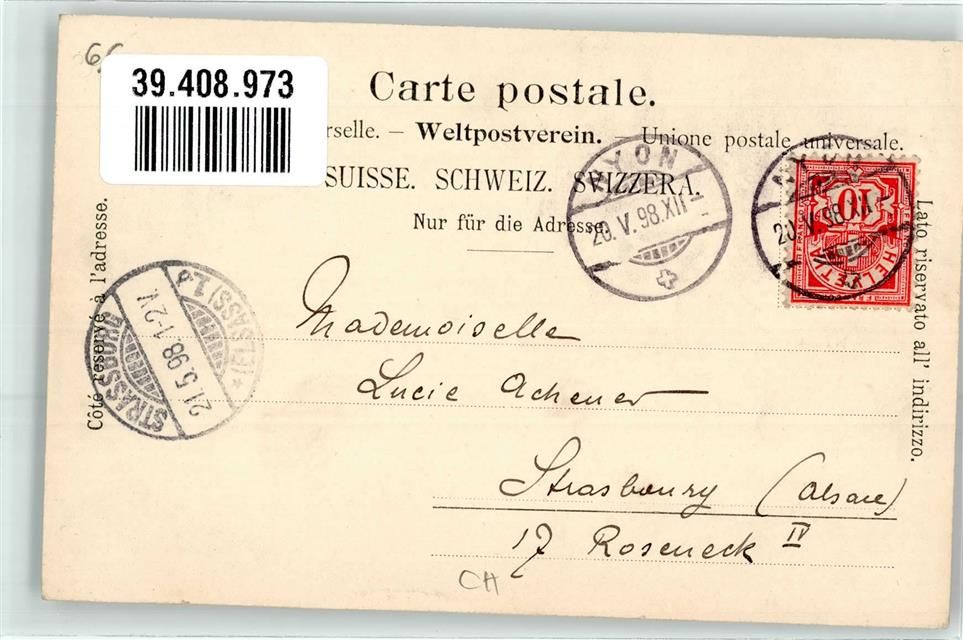 39.408.973
Carte postale.
rselle. – Weltpostverein. – Unione postale universale.
SUISSE. SCHWEIZ. SVIZZERA.
Nur für die Adresse.
Côté reservé à l'adresse.
Lato riservato all' indirizzo.
NYON
20.V.98.XII
NYON
20.V.98.XII
10
HELVETIA
FRANCO
STRASSBURG
21.5.98.1-2V.
(ELSASS) 1.
Mademoiselle
Lucie Achener
Strasbourg (Alsace)
17 Roseneck IV
CH